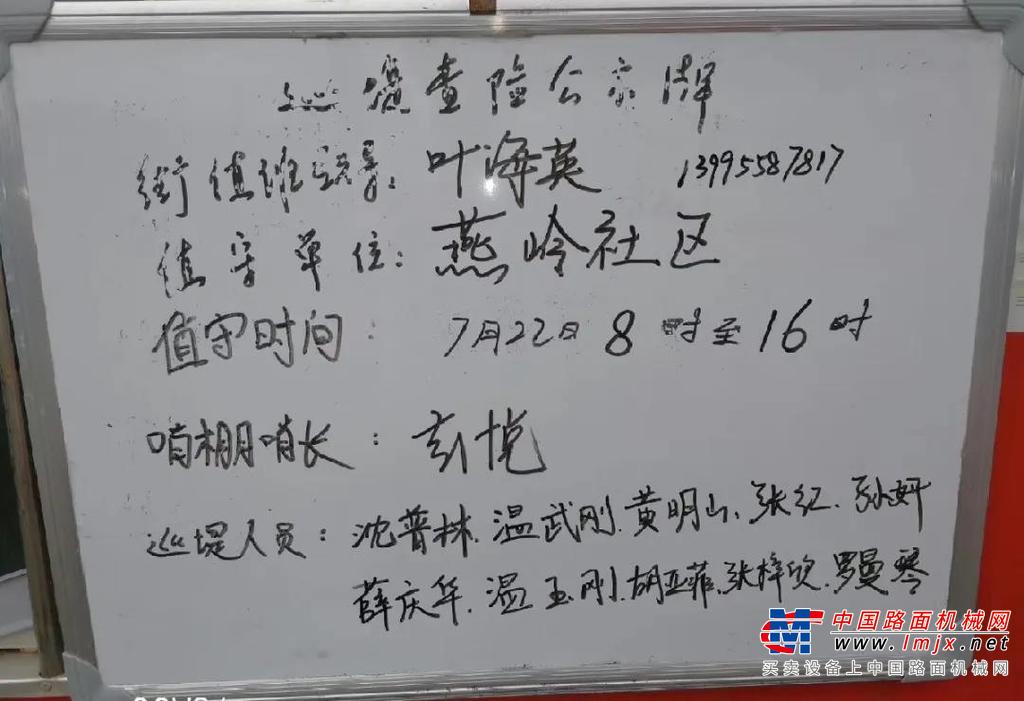 巡堤查险公示牌
街值班领导: 叶海英 13995587817
值守单位: 燕岭社区
值守时间: 7月22日8时至16时
哨棚哨长: 刘悦
巡堤人员: 沈普林、温武刚、黄明山、张红、孙妍
薛庆华、温玉刚、胡亚菲、张梓欣、罗曼琴
中国路面机械网
www.lmjx.net
买卖设备上中国路面机械网